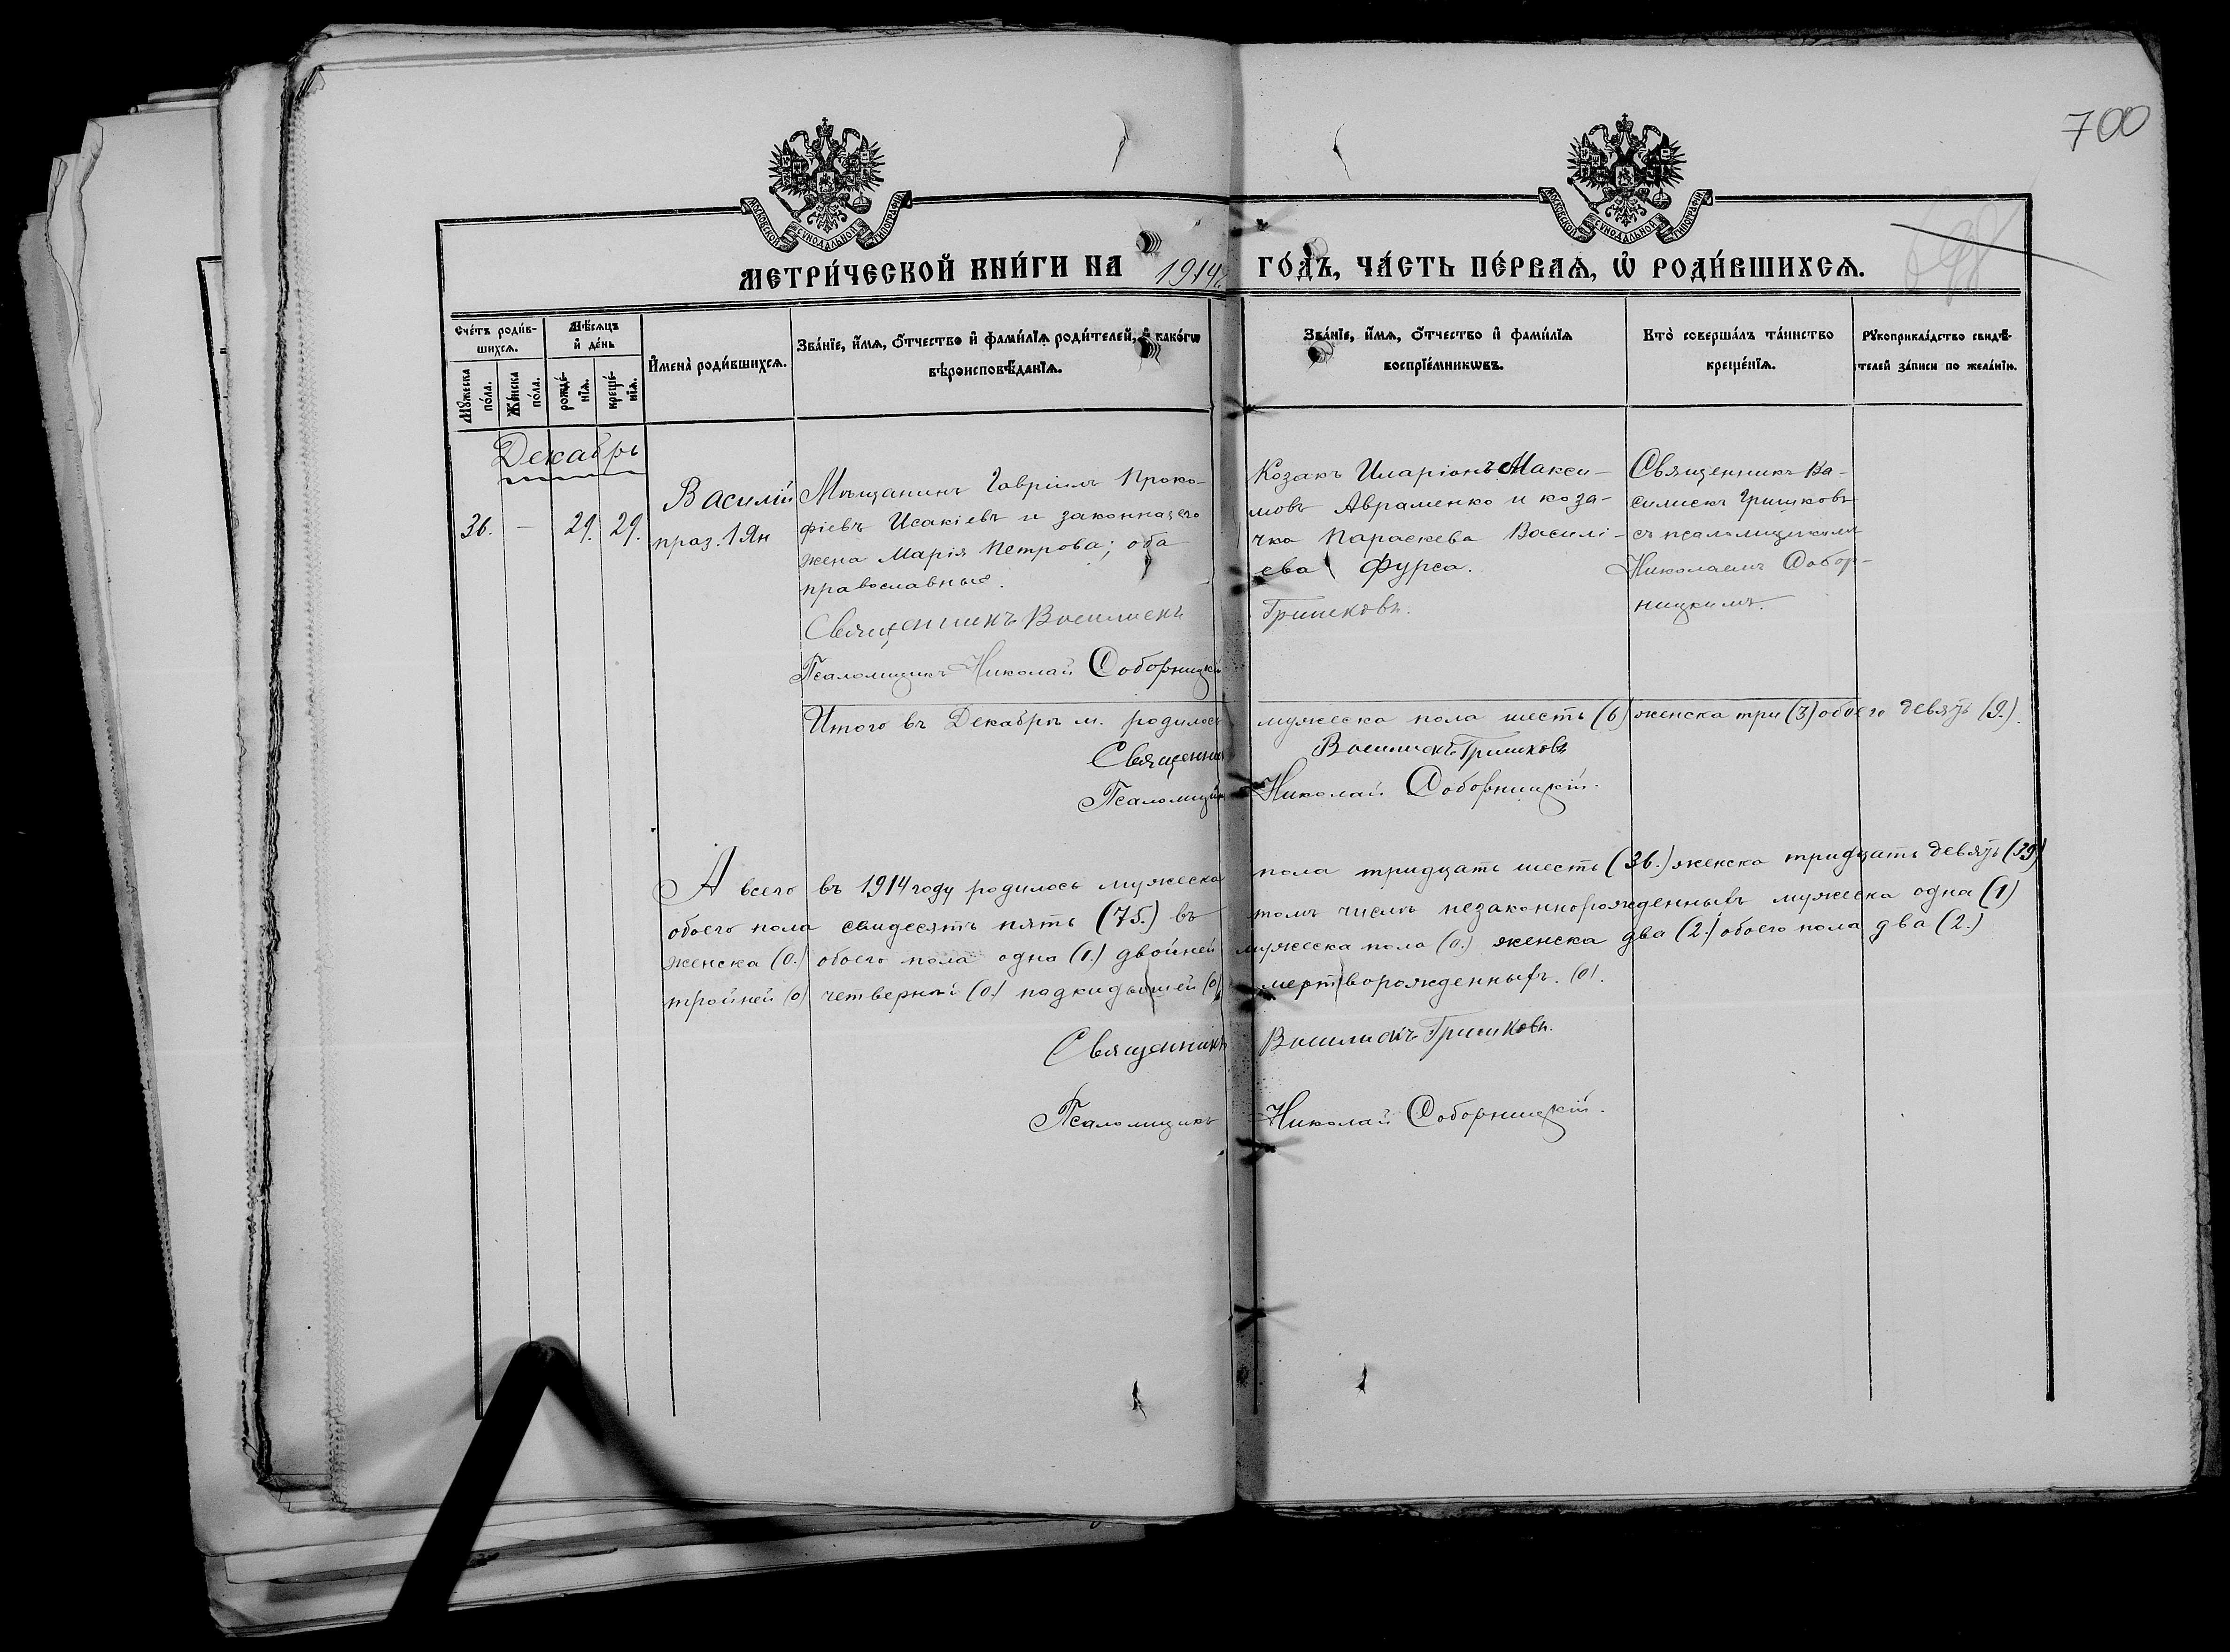 700
МОСКОВСКОЙ СѴНОДАЛЬНОЙ ТИПОГРАФІИ
МОСКОВСКОЙ СѴНОДАЛЬНОЙ ТИПОГРАФІИ
МЕТРИ́ЧЕСКОЙ КНИ́ГИ НА 1914 ГО́ДЪ, ЧА́СТЬ ПЕ́РВАѦ, Ѡ РОДИ́ВШИХСѦ.
Сче́тъ роди́в-
шихсѧ.
Мꙋжеска по́ла.
Же́нска по́ла.
Мѣ́сѧцъ и де́нь
рожде́-
нїѧ.
креще́-
нїѧ.
Имена̀ роди́вшихсѧ.
Зва́нїе, и́мѧ, о́тчество и фами́лїѧ роди́телей, и како́гѡ
вѣроисповѣ́данїѧ.
Зва́нїе, и́мѧ, о́тчество и фами́лїѧ
воспрїе́мникѡвъ.
Кто̀ соверша́лъ та́инство
креще́нїѧ.
Рꙋкоприкла́дство свидѣ́-
телей за́писи по жела́нїю.
Декабрь
36. — 29. 29.
Василій
праз. 1 Ян
Мѣщанинъ Гавріилъ Проко-
фіевъ Исакіевъ и законная его
жена Марія Петрова; оба
православные.
Козакъ Иларіонъ Макси-
мовъ Авраменко и коза-
чка Параскева Василі-
ева Фурса.
Священникъ Ва-
силискъ Гришковъ
съ псаломщикомъ
Николаемъ Собор-
ницкимъ.
Священникъ Василискъ Гришковъ.
Псаломщикъ Николай Соборницкій
Итого въ Декабрѣ м. родилось мужеска пола шесть (6) женска три (3) обоего девять (9.).
Священникъ Василискъ Гришковъ
Псаломщикъ Николай Соборницкій.
А всего въ 1914 году родилось мужеска пола тридцать шесть (36.) женска тридцать девять (39)
обоего пола семдесятъ пять (75.) въ томъ числѣ незаконнорожденныхъ мужеска одна (1)
женска (0.) обоего пола одна (1.) двойней мужеска пола (0.) женска два (2.) обоего пола два (2.)
тройней (0) четверней (0.) подкидышей (0) мертворожденныхъ. (0).
Священникъ Василискъ Гришковъ.
Псаломщикъ Николай Соборницкій.